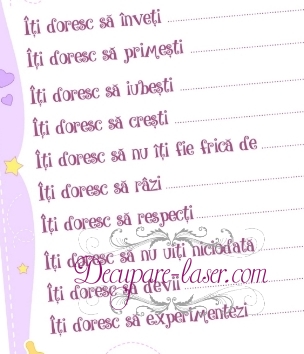 Îți doresc să înveți ..............................
Îți doresc să primești ..............................
Îți doresc să iubești ..............................
Îți doresc să crești ..............................
Îți doresc să nu îți fie frică de ..............
Îți doresc să râzi ..............................
Îți doresc să respecți ..............................
Îți doresc să nu uiți niciodată
Decupare-laser.com
Îți doresc să devii ..............................
Îți doresc să experimentezi ..............